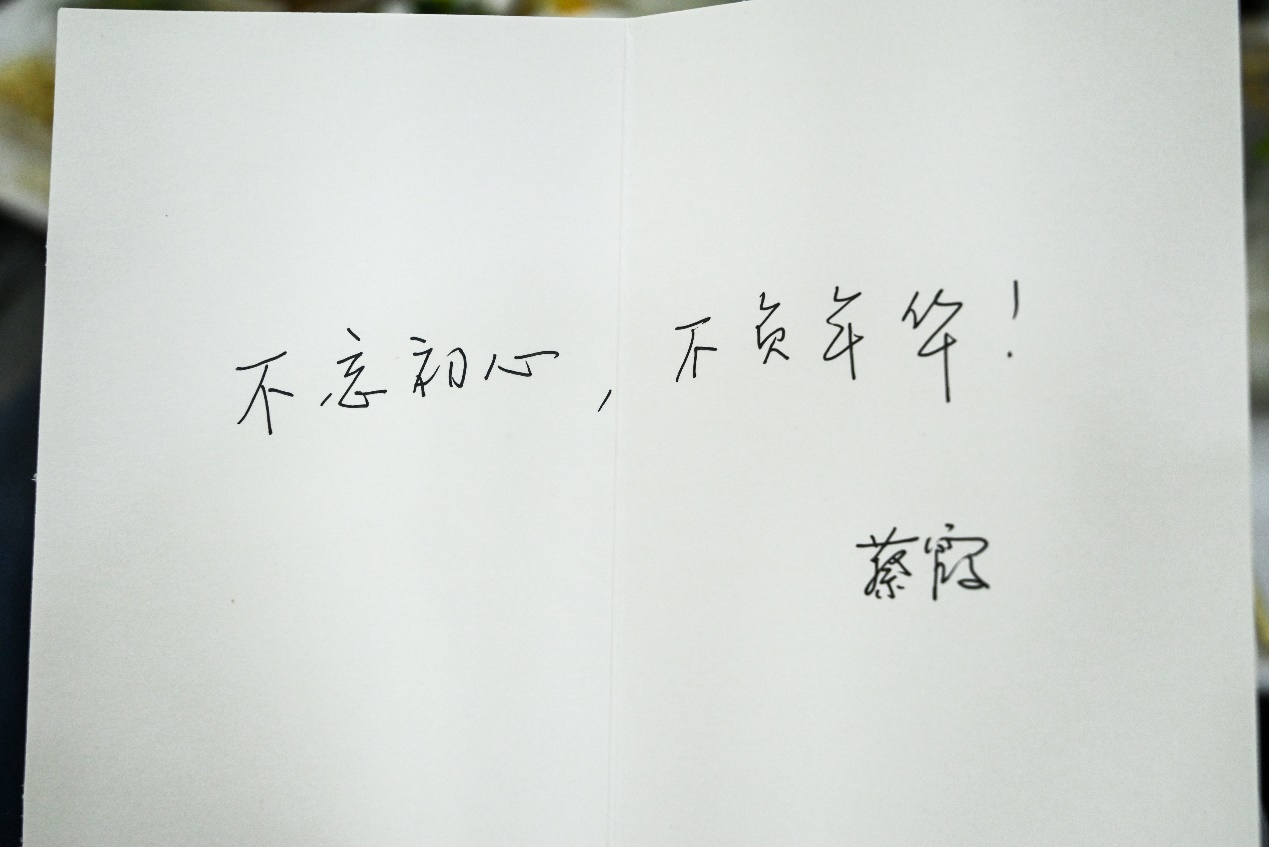 不忘初心，不负年华！
蔡霞